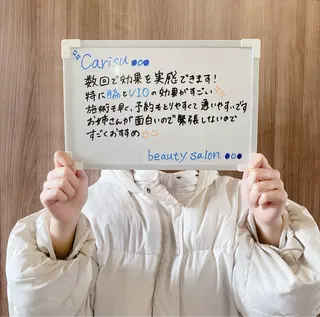 Carisu●●●
数回で効果を実感できます!
特に脇とVIOの効果がすごい
施術も早く、予約もとりやすくて通いやすいです
お姉さんが面白いので緊張しないので
すごくおすすめ
beauty salon ●●●